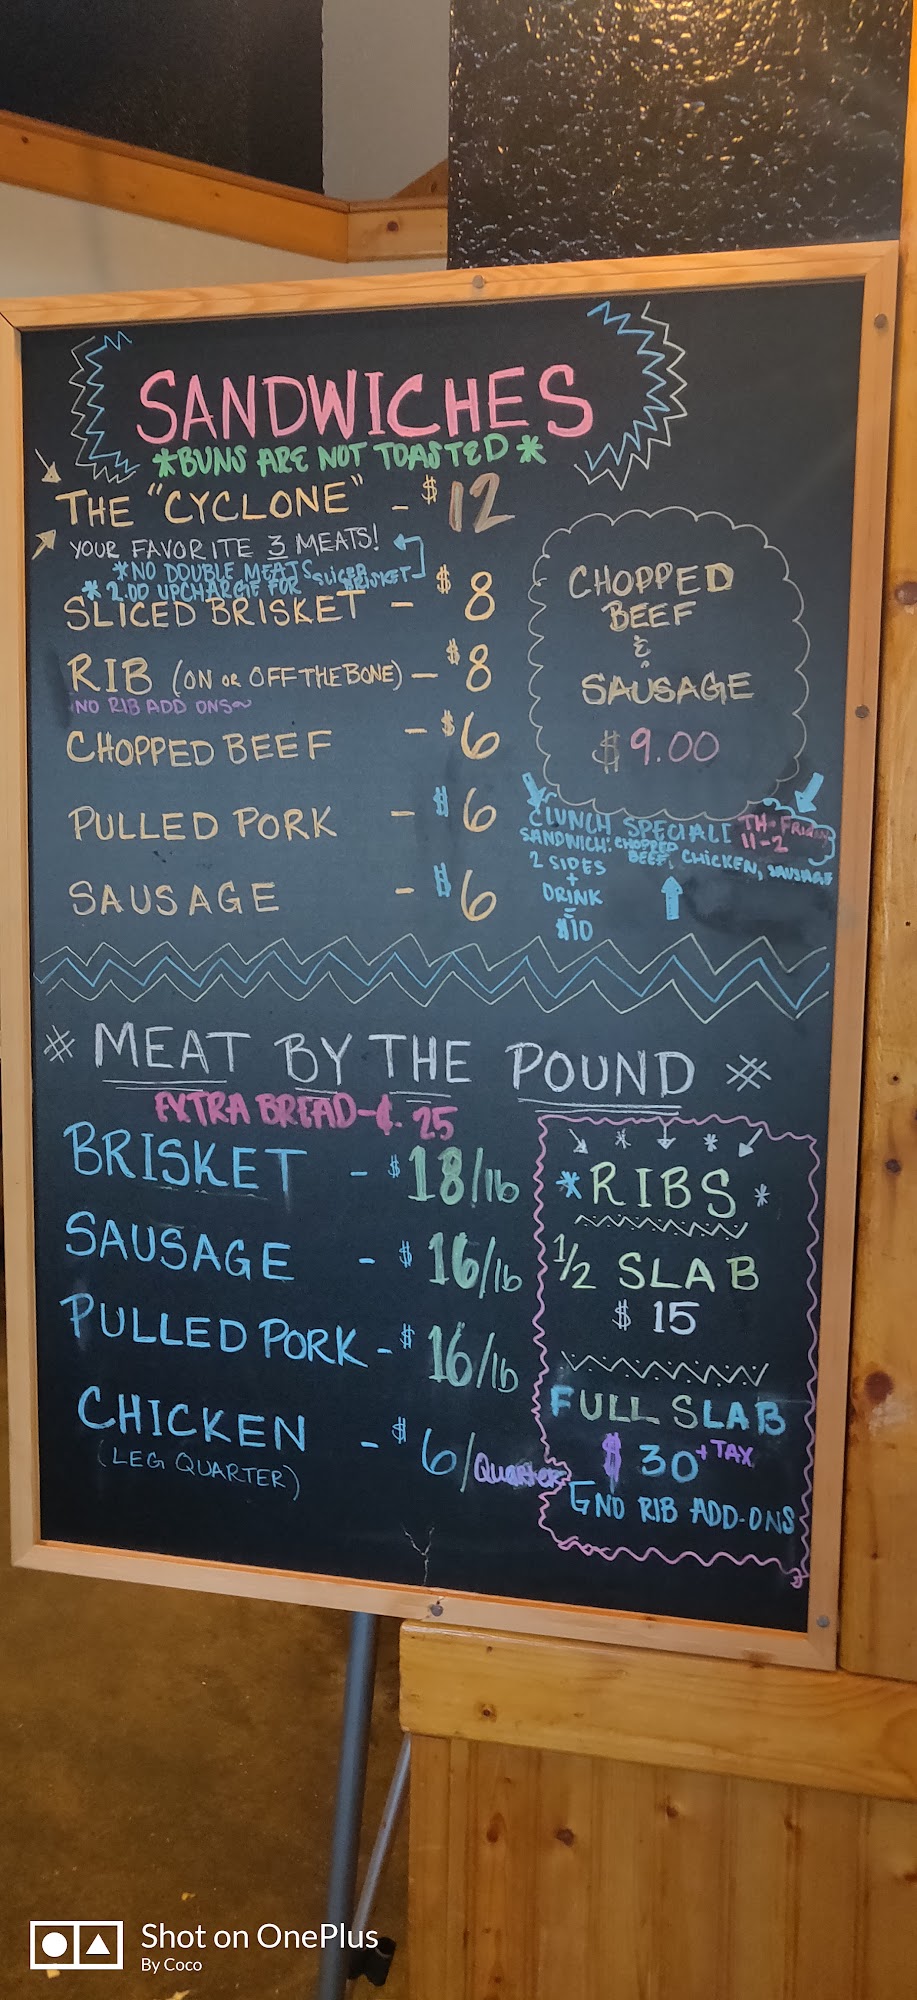 SANDWICHES
*BUNS ARE NOT TOASTED*
THE "CYCLONE" - $12
YOUR FAVORITE 3 MEATS!
*NO DOUBLE MEATS
* 2.00 UPCHARGE FOR SLICED BRISKET
SLICED BRISKET - $8
RIB (ON OR OFF THE BONE) - $8
NO RIB ADD ONS~
CHOPPED BEEF - $6
PULLED PORK - $6
SAUSAGE - $6
CHOPPED
BEEF
&
SAUSAGE
$9.00
LUNCH SPECIAL TH-FRIDAY
11-2
SANDWICH: CHOPPED BEEF, CHICKEN, SAUSAGE
2 SIDES
+
DRINK
-
$10
# MEAT BY THE POUND #
EXTRA BREAD-¢.25
BRISKET - $18/lb
SAUSAGE - $16/lb
PULLED PORK - $16/lb
CHICKEN - $6/Quarter
(LEG QUARTER)
*RIBS*
1/2 SLAB
$15
FULL SLAB
$30+TAX
NO RIB ADD-ONS
Shot on OnePlus
By Coco